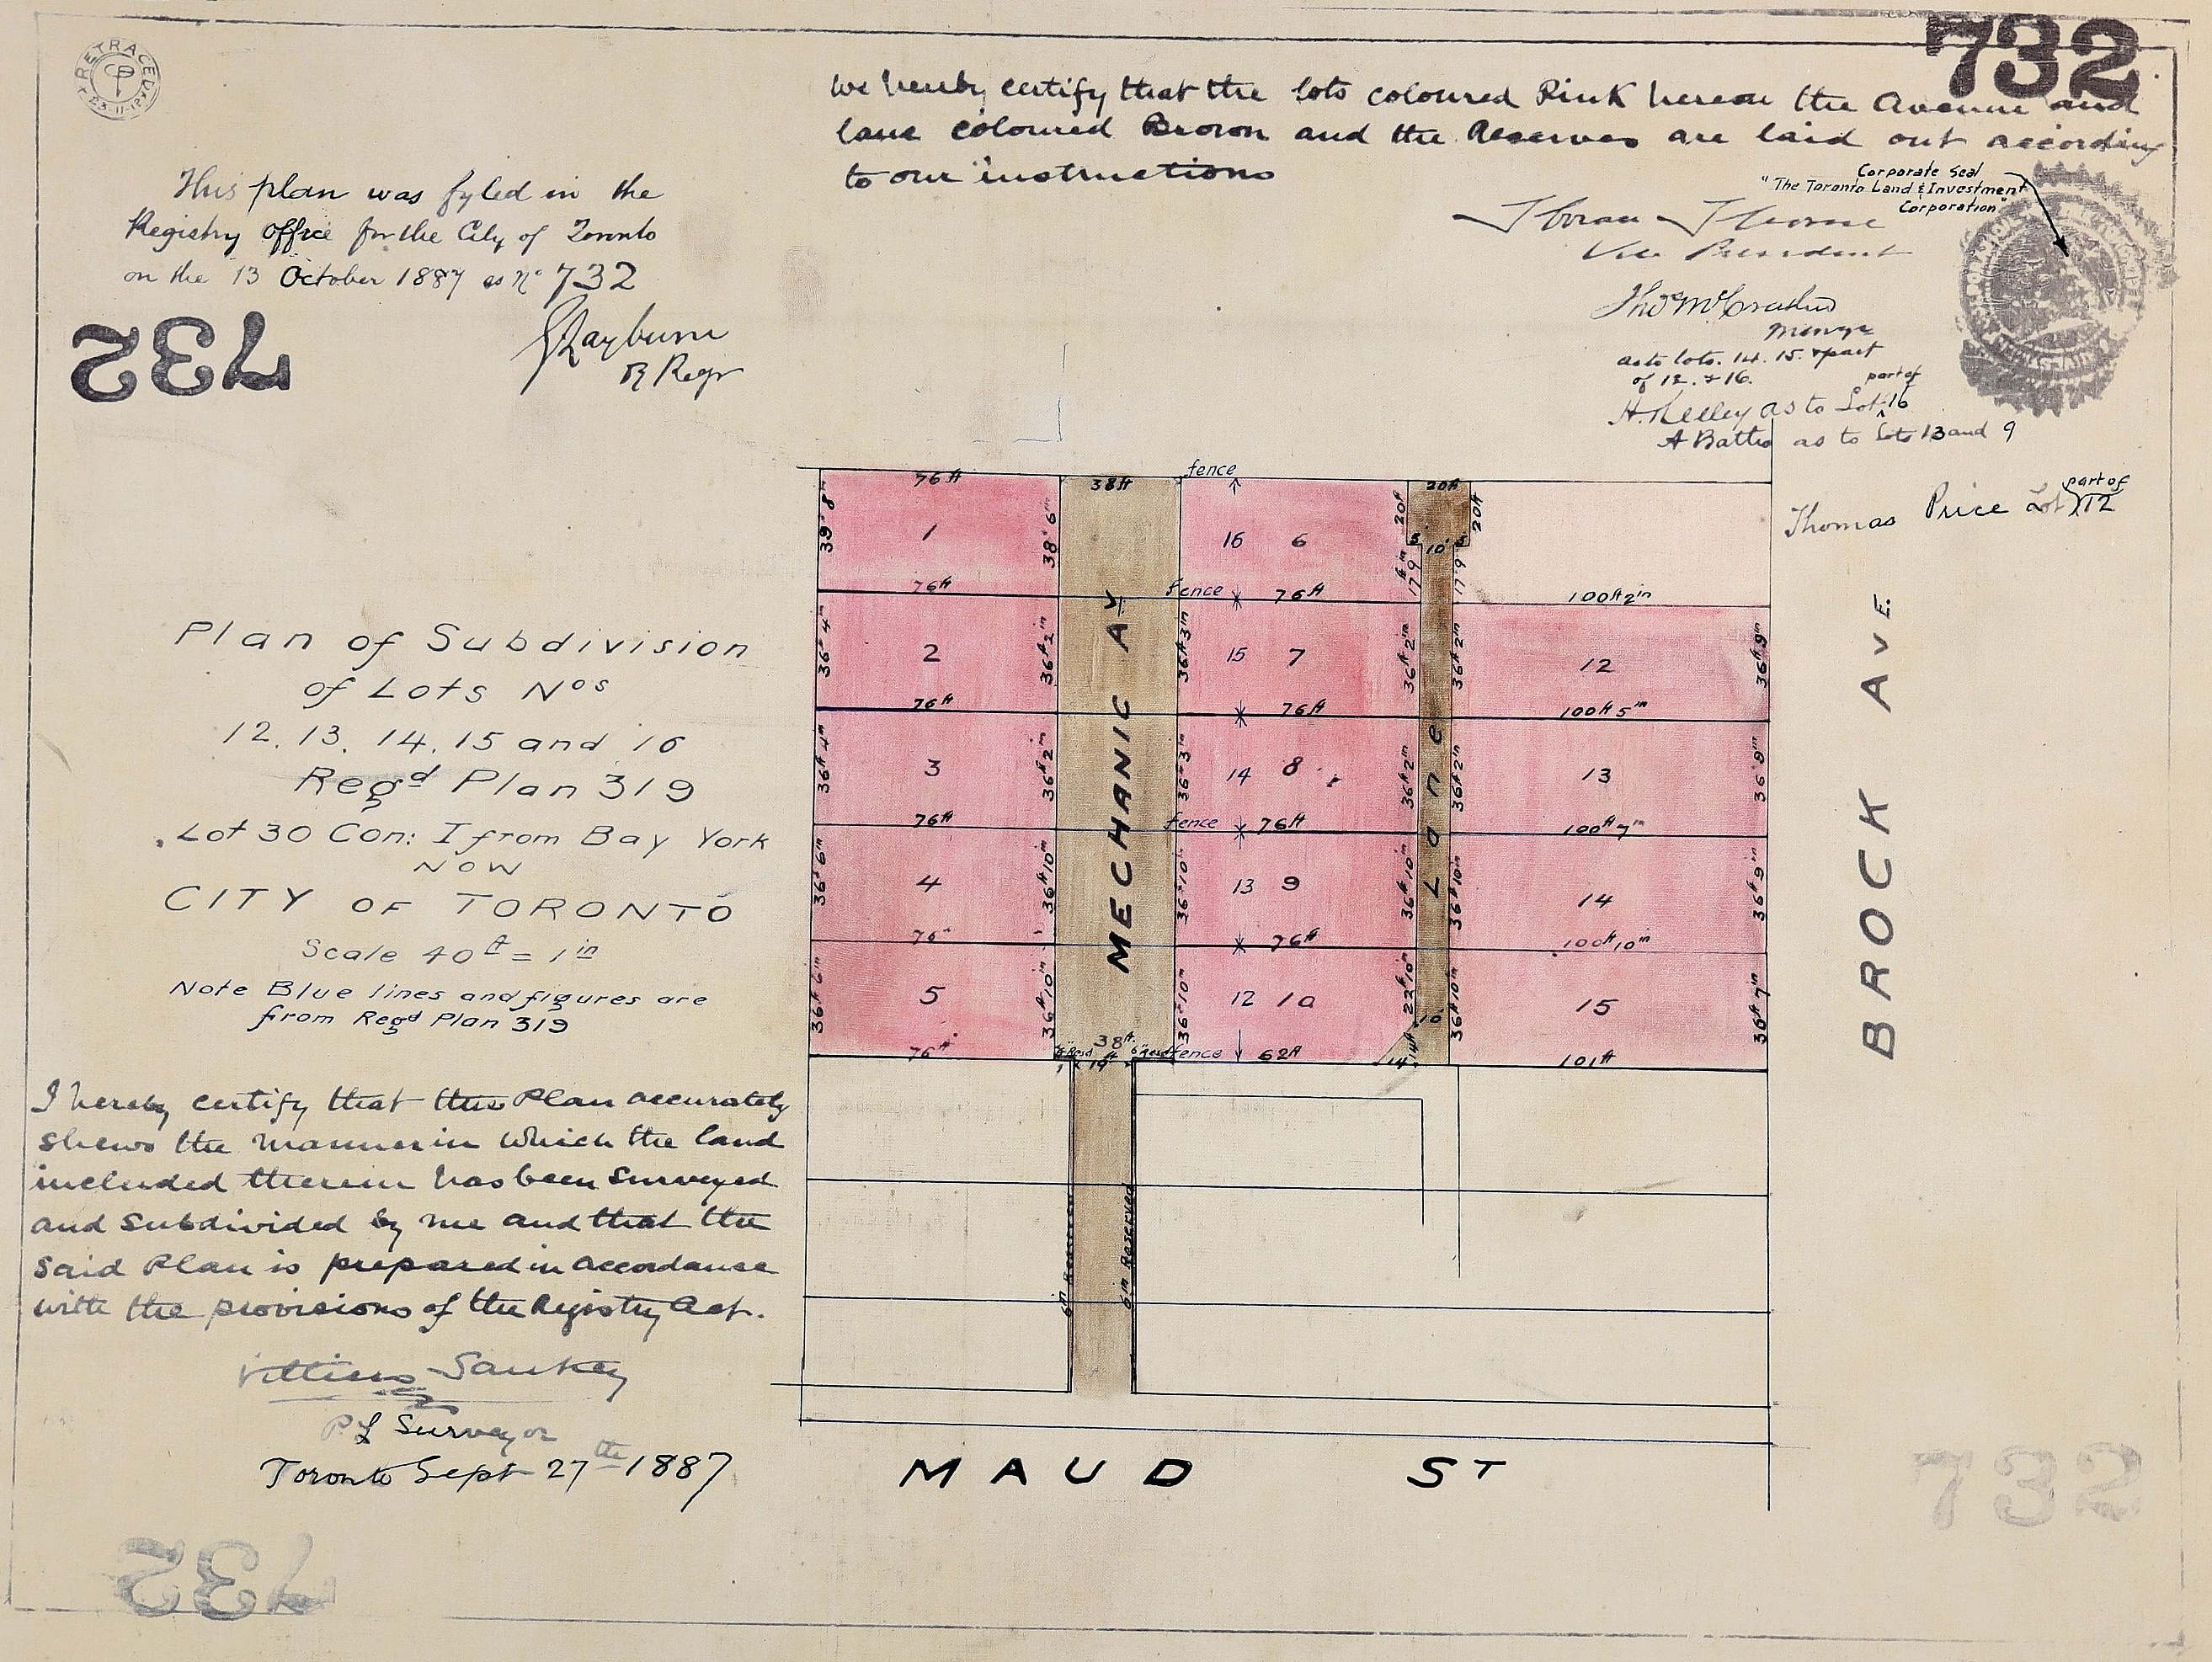 732
RETRACED
We hereby certify that the lots coloured Pink hereon the Avenue and
lane coloured Brown and the Reserves are laid out according
to our instructions
Corporate Seal
"The Toronto Land & Investment
Corporation"
Vice President
Manager
as to lots. 14. 15. & part
of 12. & 16.
part of
H. Kelley as to Lot 16
as to Lots 13 and 9
part of
Thomas Price Lot 12
This plan was fyled in the
Registry office for the City of Toronto
on the 13 October 1887 as No 732
732
Plan of Subdivision
of Lots Nos
12, 13, 14, 15 and 16
Regd Plan 319
Lot 30 Con: I from Bay York
NOW
CITY OF TORONTO
Scale 40ft = 1in
Note Blue lines and figures are
from Regd Plan 319
I hereby certify that this Plan accurately
shews the manner in which the land
included therein has been surveyed
and subdivided by me and that the
said Plan is prepared in accordance
with the provisions of the Registry Act.
Villiers Sankey
P L Surveyor
Toronto Sept 27th 1887
732
732
fence
76 ft 38 ft 20 ft
39' 8" 1 38' 6" 16 6 20 ft 20 ft
5 10' 5
17' 9" 17' 9"
76 ft fence 76 ft 100 ft 2 in
36 ft 4 in 2 36 ft 2 in 36 ft 3 in 15 7 36 ft 2 in 36 ft 2 in 12 36 ft 9 in
76 ft 76 ft 100 ft 5 in
36 ft 4 in 3 36 ft 2 in 36 ft 3 in 14 8 36 ft 2 in 36 ft 2 in 13 36' 9 in
76 ft fence 76 ft 100 ft 7 in
36 ft 6 in 4 36 ft 10 in 36 ft 10 in 13 9 36 ft 10 in 36 ft 10 in 14 36 ft 9 in
76" 76 ft 100 ft 10 in
36 ft 6 in 5 36 ft 10 in 36 ft 10 in 12 10 22 ft 10 in 10' 36 ft 10 in 15 36 ft 7 in
76 ft 38 ft fence 62 ft 14 14 ft 101 ft
19 ft
MECHANIC AV
Lane
BROCK AVE
6 in Reserved
6 in Reserved
MAUD ST